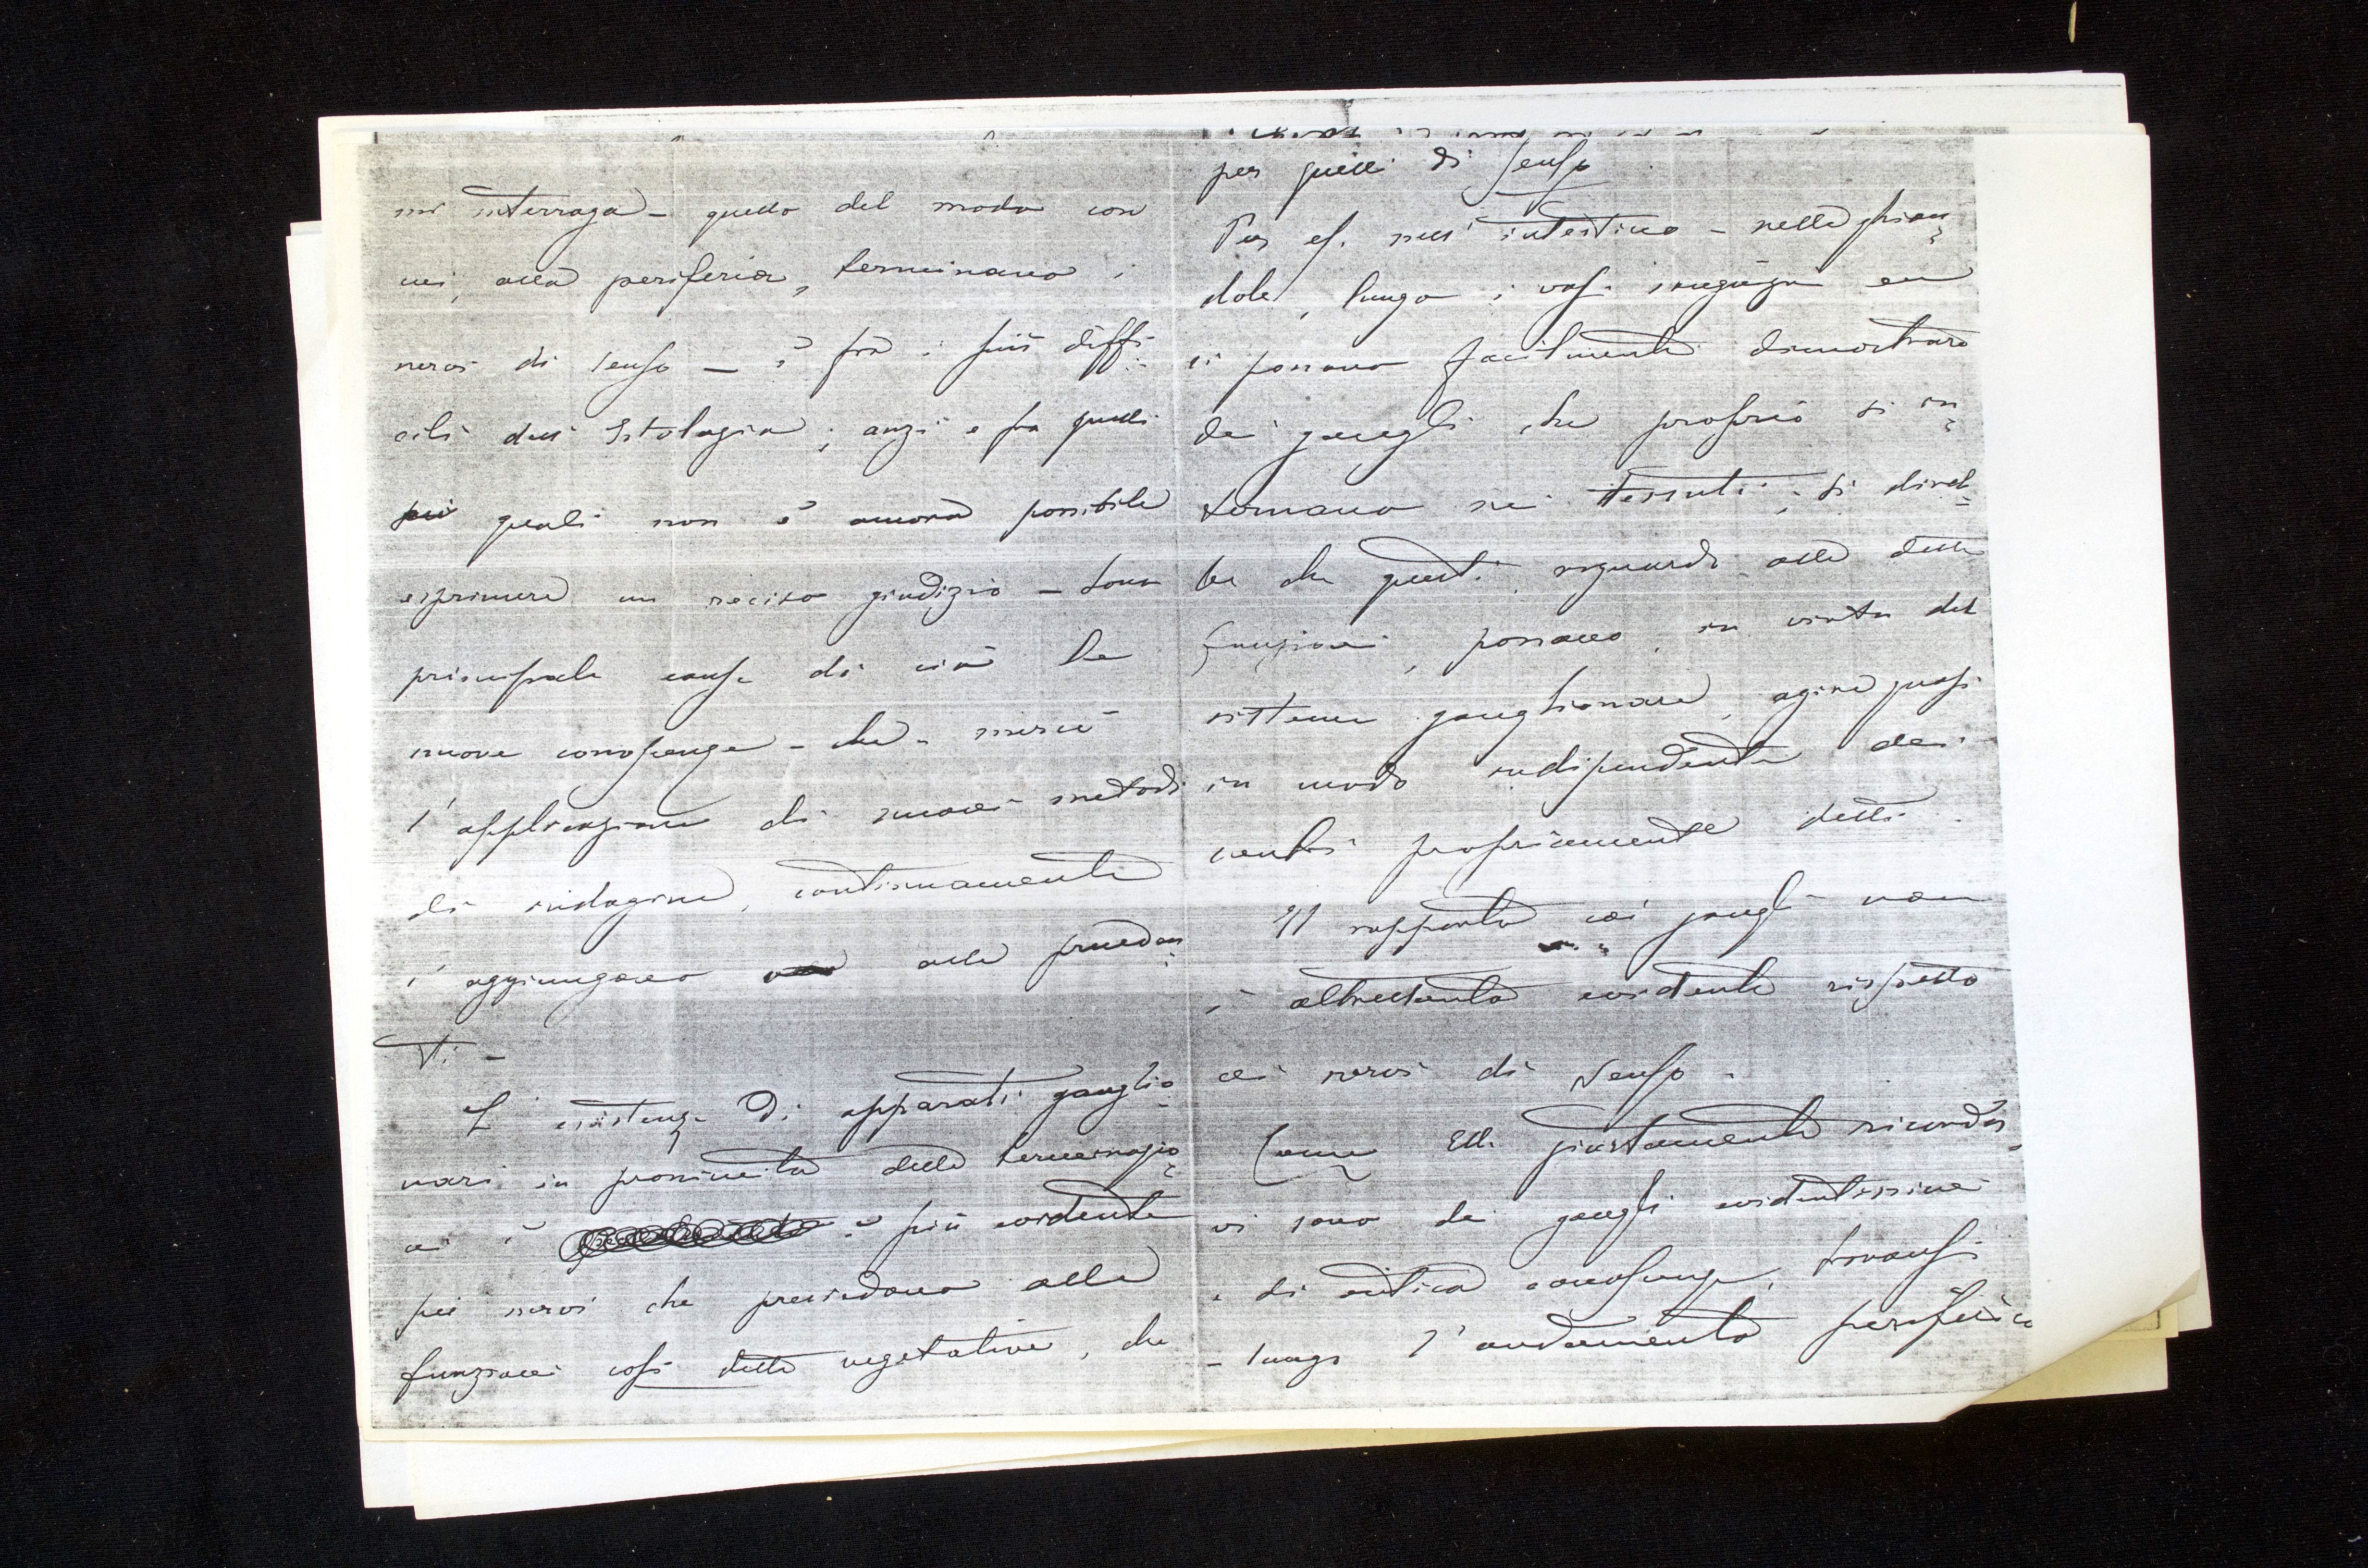 mi interroga - quello del modo con
cui, alla periferia, terminano i
nervi di senso — è fra i più diffi-
cili dell' Istologia; anzi è fra quelli
pei quali non è ancora possibile
esprimere un reciso giudizio -
principale causa di ciò le
nuove conoscenze - che - mercè
l' applicazione di nuovi metodi
di indagine, continuamente
s' aggiungono alle preceden-
ti -
L' esistenza di apparati ganglio-
nari in prossimità delle terminazio-
ni è più evidente
pei nervi che presiedono alle
funzioni così dette vegetative, che
per quelli di senso
Per es. nell' intestino - nelle ghian-
dole, lungo i vasi sanguigni ecc
si possono facilmente dimostrare
dei gangli che proprio si in-
ternano nei tessuti; si direb-
be che questi, riguardo alle dette
funzioni, possano, in virtù del
sistema ganglionare, agire quasi
in modo indipendente dai
centri propriamente detti.
Il rapporto coi gangli non
è altrettanto evidente rispetto
ai nervi di senso.
Come Ell. giustamente ricorda,
vi sono dei gangli evidentissimi
e di antica conoscenza, trovansi
- lungo l' andamento periferico